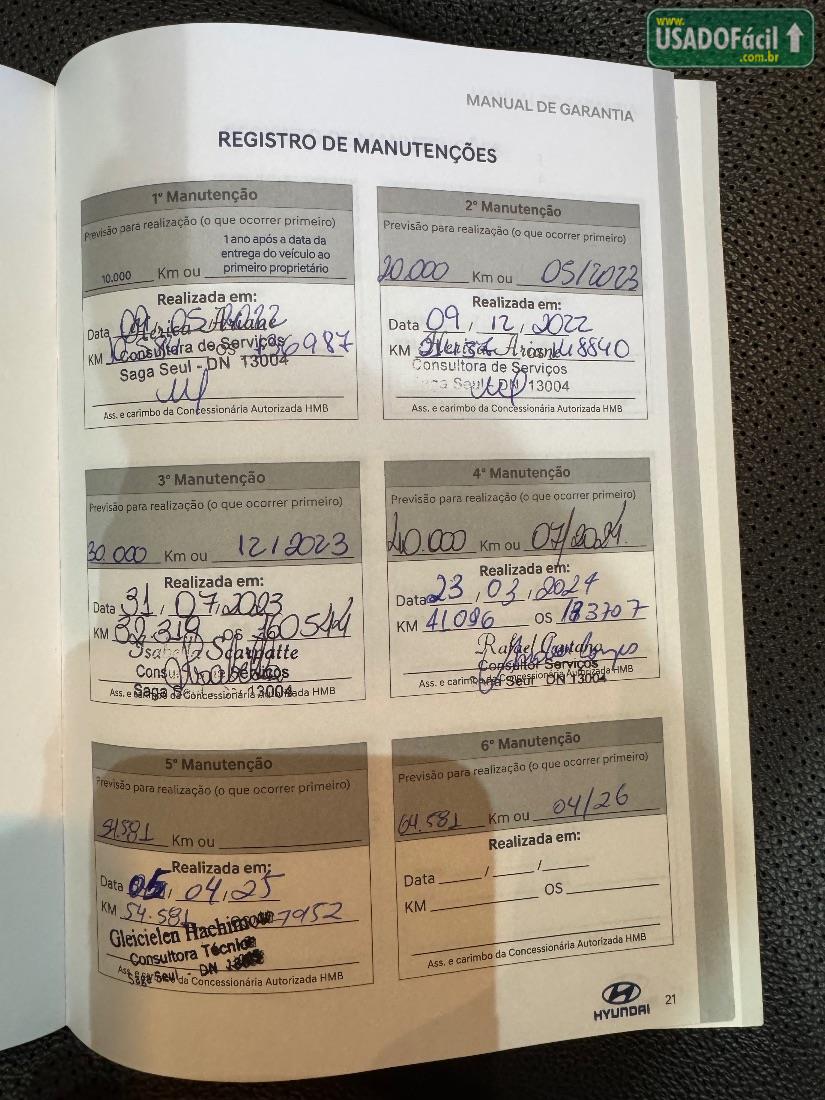 www.
USADOFácil
.com.br
MANUAL DE GARANTIA
REGISTRO DE MANUTENÇÕES
1º Manutenção
Previsão para realização (o que ocorrer primeiro)
10.000 Km ou 1 ano após a data da entrega do veículo ao primeiro proprietário
Realizada em:
Data 05, 2022
KM OS 987
Consultora de Serviços
Saga Seul - DN 13004
Ass. e carimbo da Concessionária Autorizada HMB
2º Manutenção
Previsão para realização (o que ocorrer primeiro)
20.000 Km ou 05/2023
Realizada em:
Data 09, 12, 2022
KM 8840
Consultora de Serviços
Seul - DN 13004
Ass. e carimbo da Concessionária Autorizada HMB
3º Manutenção
Previsão para realização (o que ocorrer primeiro)
30.000 Km ou 12/2023
Realizada em:
Data 31, 07, 2023
KM 32.319 OS 160544
Isabella Scarpatte
Saga 13004
Ass. e carimbo da Concessionária Autorizada HMB
4º Manutenção
Previsão para realização (o que ocorrer primeiro)
40.000 Km ou 07/2024.
Realizada em:
Data 23, 03, 2024
KM 41096 OS 183707
Rafael Santana
Consultor Serviços
Seul DN 13004
Ass. e carimbo da Concessionária Autorizada HMB
5º Manutenção
Previsão para realização (o que ocorrer primeiro)
51.581 Km ou
Realizada em:
Data 05, 04, 25
KM 54.581 7952
Gleicielen
Consultora Técnica
Seul - DN
Ass. e carimbo da Concessionária Autorizada HMB
6º Manutenção
Previsão para realização (o que ocorrer primeiro)
64.581 Km ou 04/26
Realizada em:
Data / /
KM OS
Ass. e carimbo da Concessionária Autorizada HMB
HYUNDAI
21